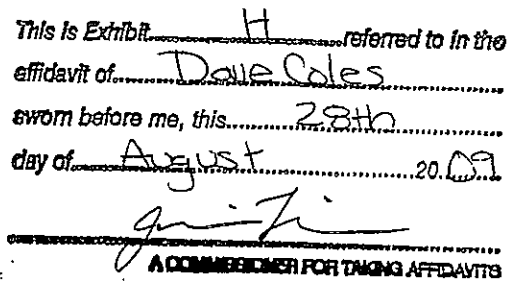 This is Exhibit H referred to in the
affidavit of Dave Coles
sworn before me, this 28th
day of August 2009
A COMMISSIONER FOR TAKING AFFIDAVITS